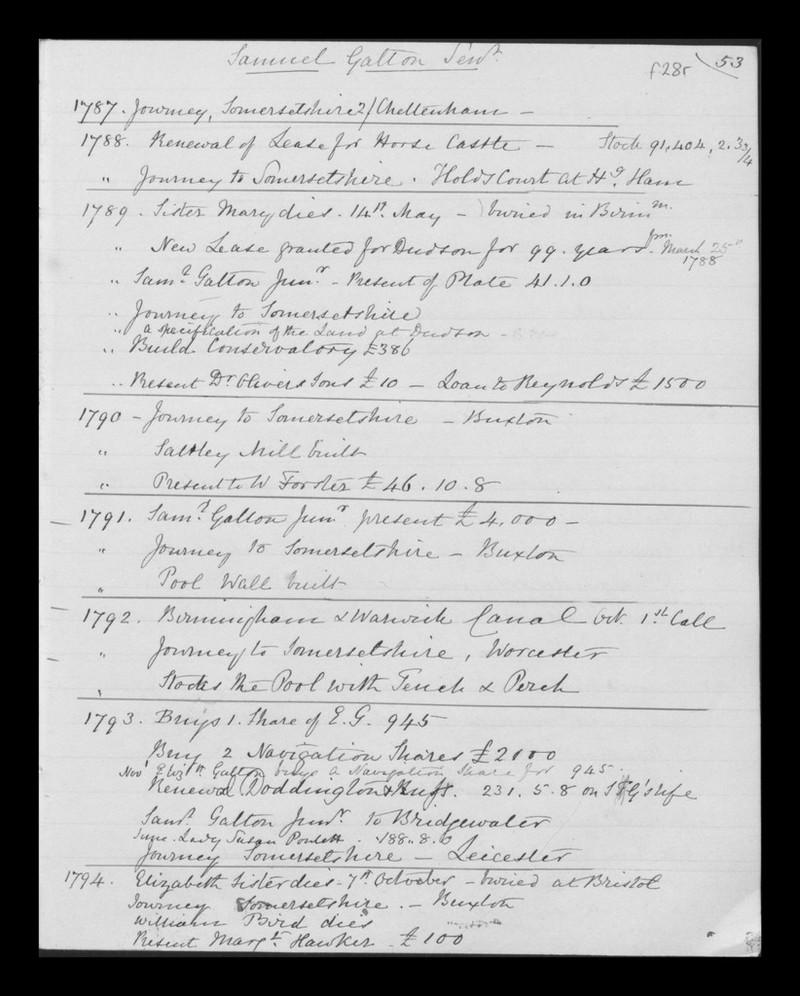 Samuel Galton Senr.
f28r 53
1787. Journey, Somersetshire 2/ Cheltenham —
1788. Renewal of Lease for Horse Castle — Stock 91,404,2.3 3/4
" Journey to Somersetshire. Holds Court at Hs. Ham
1789. Sister Mary dies. 14th. May — buried in Birmm.
" New Lease granted for Dudson for 99. years fm. March 25th 1788
" Saml. Galton Junr. — Present of Plate 41.1.0
" Journey to Somersetshire
" a specification of the Land at Dudson —
" Build Conservatory £386
" Present Dr. Olivers Sons £10 — Loan to Reynolds £1500
1790 — Journey to Somersetshire — Buxton
" Saltley Mill built
" Present to W Forster £46.10.8
1791. Saml. Galton Junr. present £4.000 —
" Journey to Somersetshire — Buxton
" Pool Wall built
1792. Birmingham & Warwick Canal Oct. 1st. Call
" Journey to Somersetshire, Worcester
" Stocks the Pool with Tench & Perch
1793. Buys 1. Share of E.G. 945
Buy 2 Navigation Shares £2100
Novr. Elizth. Galton buys a Navigation Share for 945.
Renewal Doddington & 231.5.8 on STG's life
Saml. Galton Junr. to Bridgewater
June. Lady Susan Poulett. 188.8.6
Journey Somersetshire — Leicester
1794. Elizabeth Sister dies — 7th October — buried at Bristol
Journey Somersetshire. — Buxton
William Bird dies
Present Margt. Hawker £100